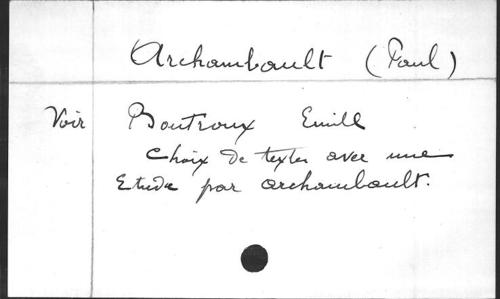 Archambault (Paul)
Voir Boutroux Emile
Choix de textes avec une
Etude par Archambault.